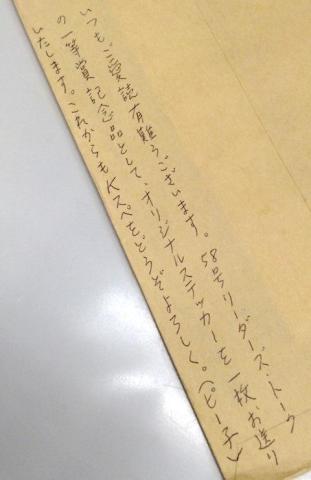 いつもご愛読有難うございます。58号リーダーズ・トーク
の一等賞記念品として、オリジナルステッカーを一枚お送り
いたします。これからもKスペをどうぞよろしく。(ピー子)